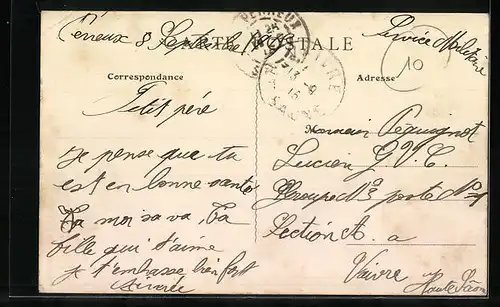 Perreux 8 Septembre 1915
CARTE POSTALE
Service Militaire
10
PERREUX
VAIVRE
Correspondance
Adresse
Petit père
je pense que tu
est en bonne santé
moi sa va. Ta
fille qui t'aime
je t'embrasse bien fort
Monsieur Péquignot
Lucien G.V.C.
Groupe No 3 poste No 1
Section A. a
Vaivre
Haute Saône